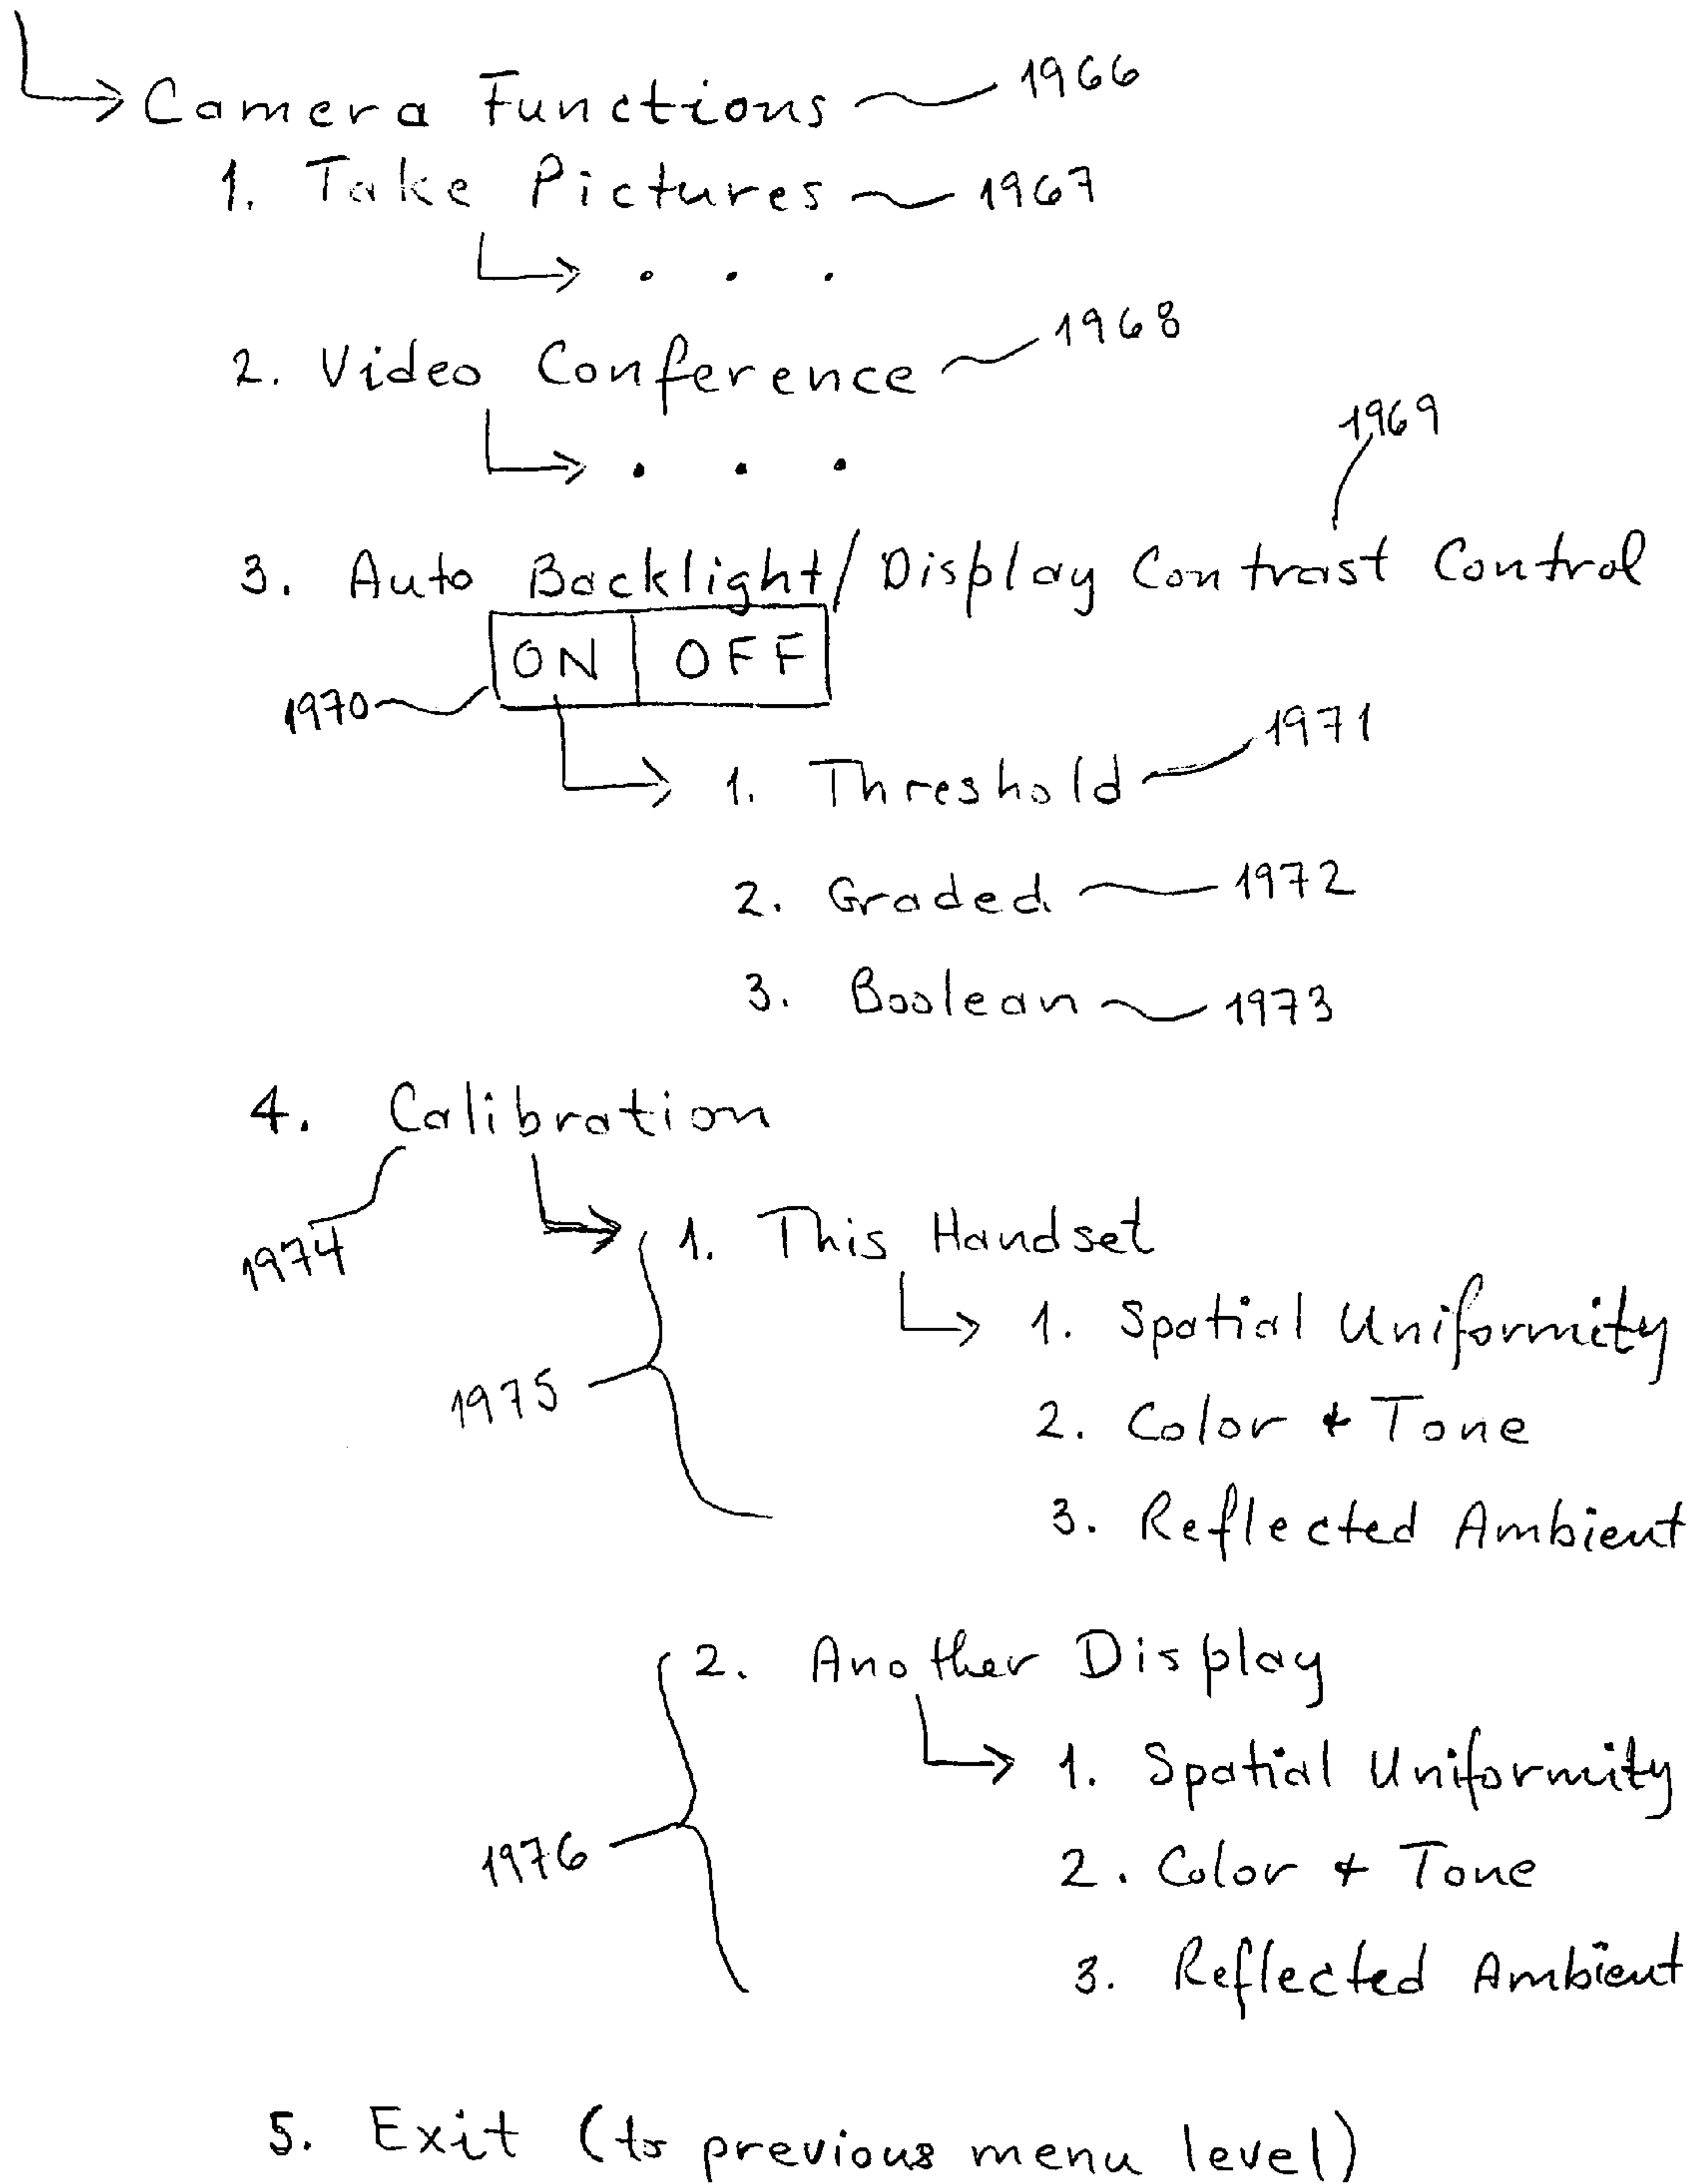 Camera Functions 1966
1. Take Pictures 1967
. . .
2. Video Conference 1968
. . .
1969
3. Auto Backlight/Display Contrast Control
ON OFF
1970
1. Threshold 1971
2. Graded 1972
3. Boolean 1973
4. Calibration
1974
1. This Handset
1. Spatial Uniformity
1975
2. Color & Tone
3. Reflected Ambient
2. Another Display
1. Spatial Uniformity
1976
2. Color & Tone
3. Reflected Ambient
5. Exit (to previous menu level)